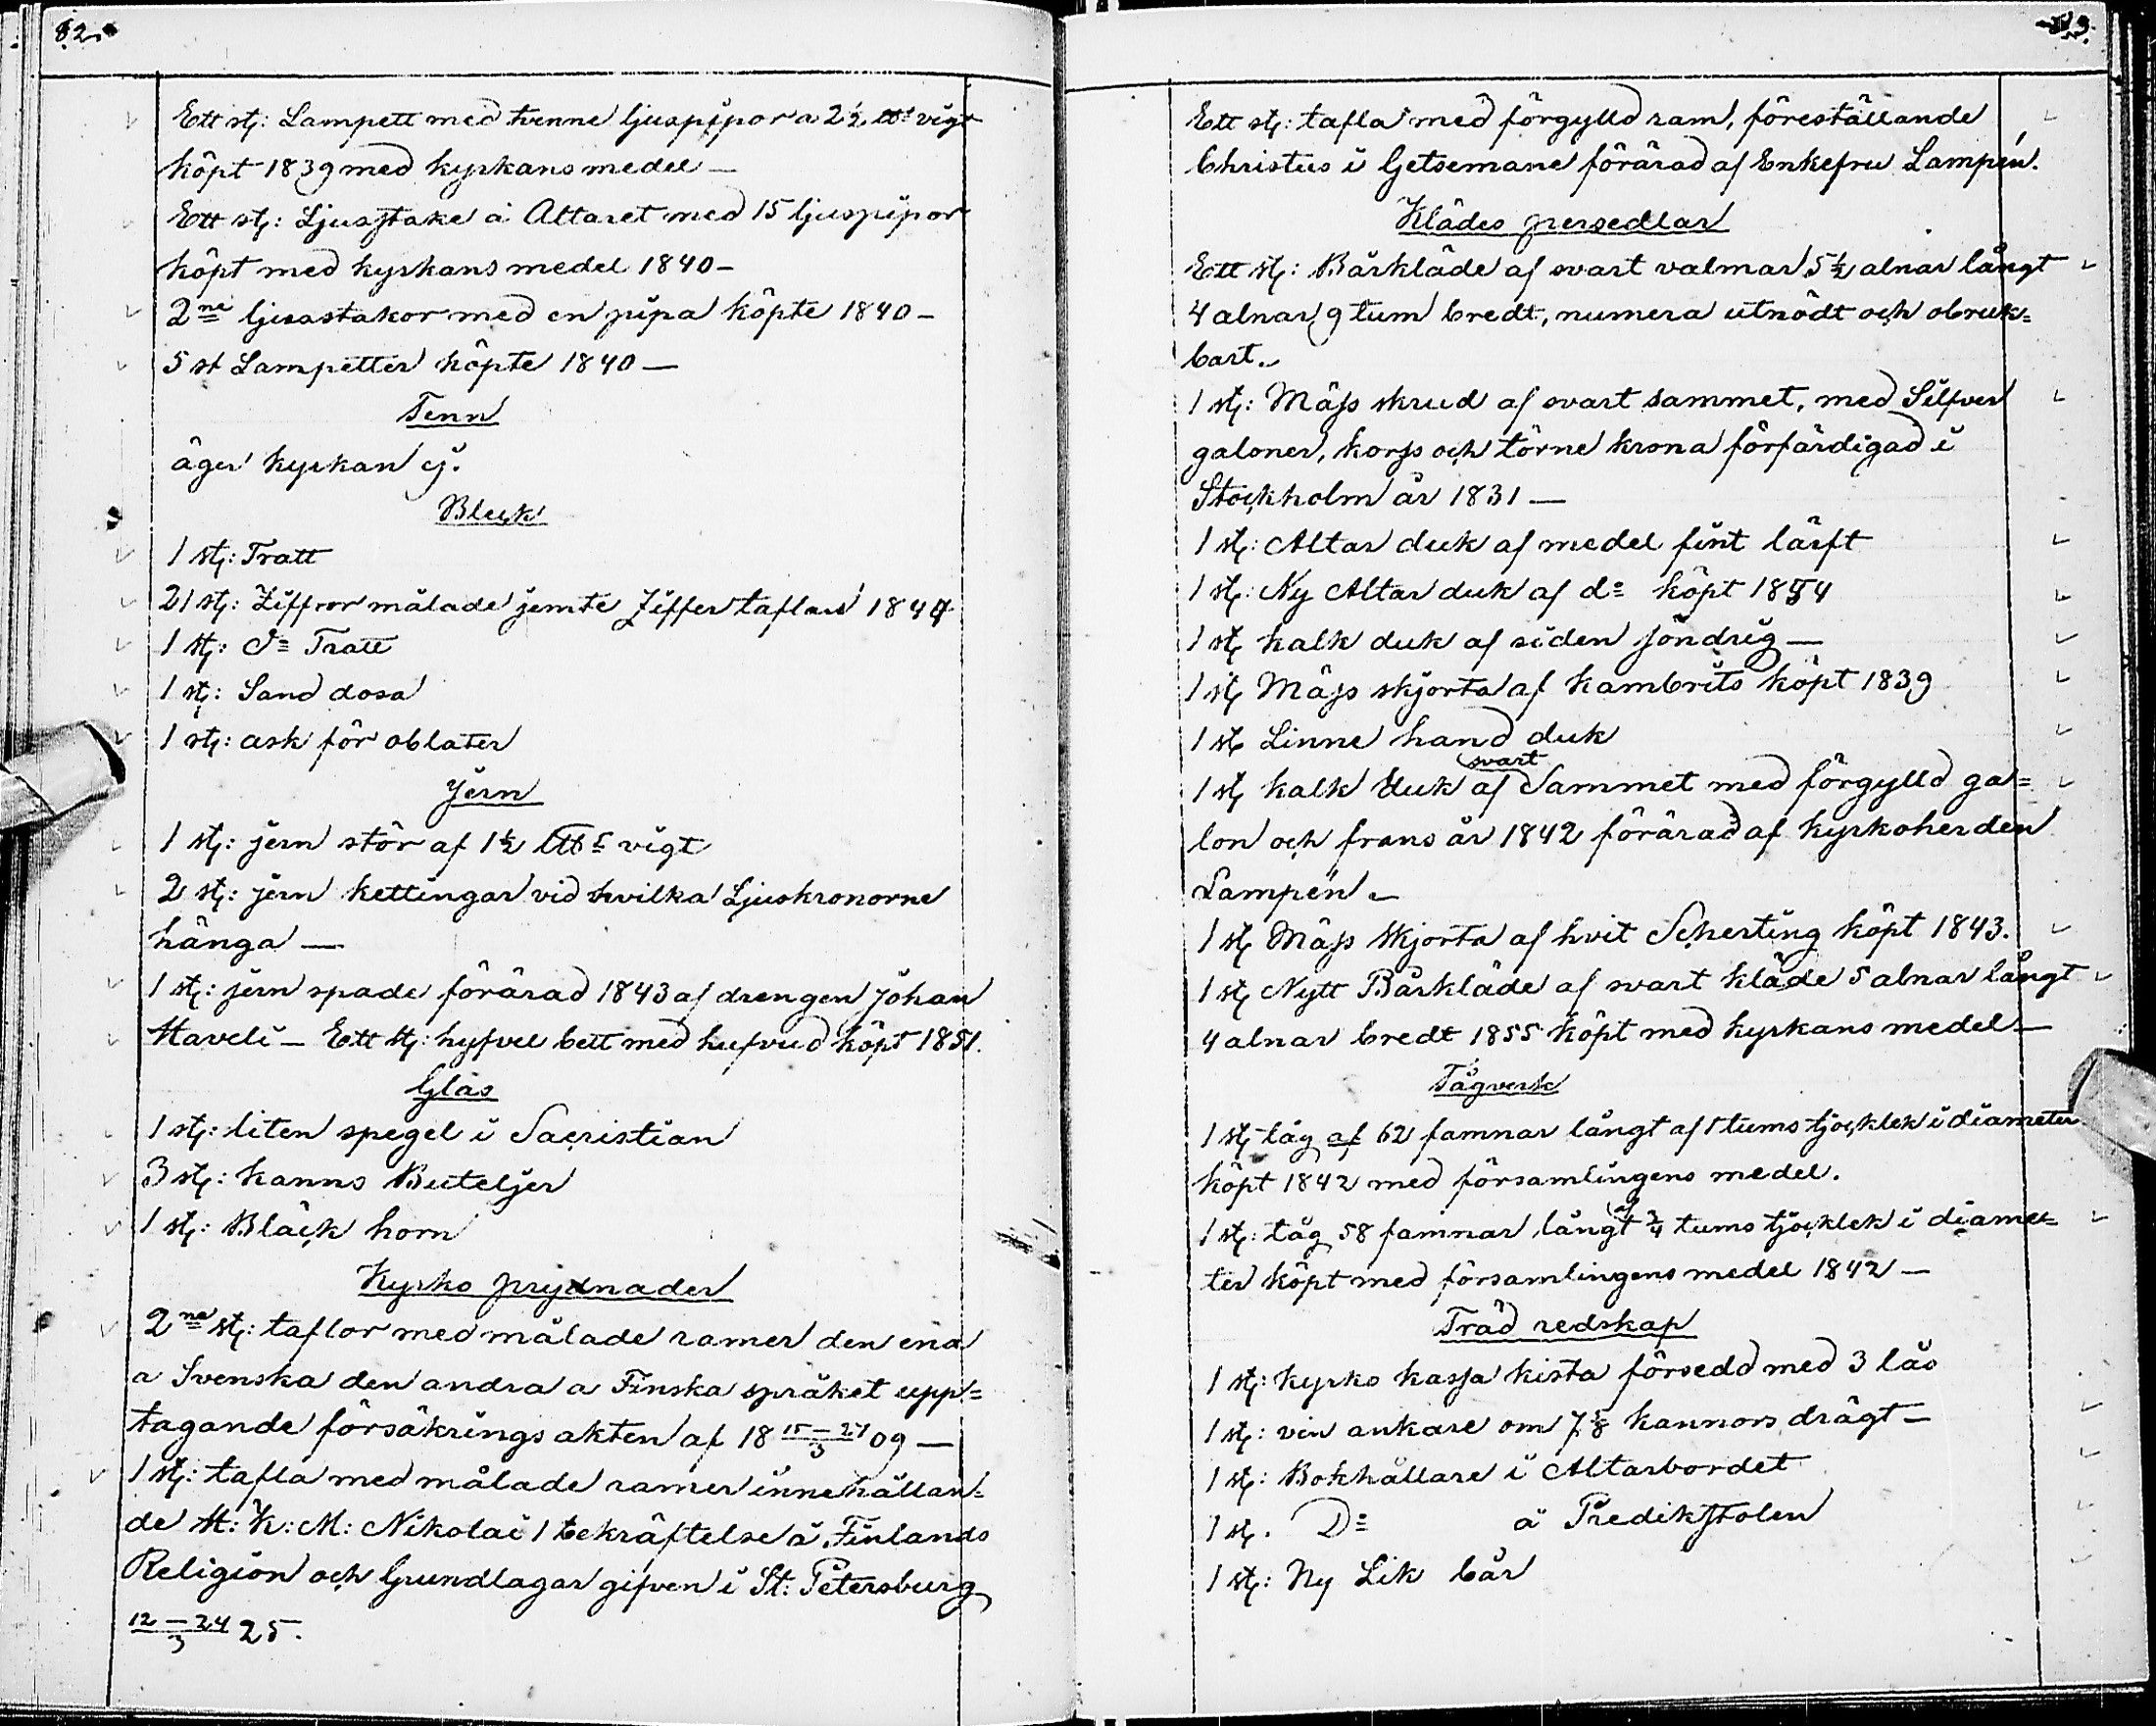 82.
Ett st: Lampett med tvenne ljuspipor a 2½ ℔ vigt
köpt 1839 med kyrkans medel —
Ett st: Ljusstake å Altaret med 15 ljuspipor
köpt med kyrkans medel 1840 —
2ne ljusastakor med en pipa köpte 1840 —
5 st Lampetter köpte 1840 —
Tenn
äger kyrkan ej.
Bleck
1 st: Tratt
21 st: Ziffror målade jemte Ziffer taflan 1844
1 st: do Tratt
1 st: Sand dosa
1 st: ask för oblater
Jern
1 st: jern stör af 1½ vigt
2 st: jern kettingar vid hvilka Ljuskronorne
hänga —
1 st: jern spade förärad 1843 af drengen Johan
Haveli — Ett st: hyfvel bett med hufvud köpt 1851.
Glas
1 st: liten spegel i Sacristian
3 st: kanns Buteljer
1 st: Bläck horn
Kyrko prydnader
2ne st: taflor med målade ramer den ena
a Svenska den andra a Finska språket upp=
tagande försäkrings akten af 18 15–27/3 09 —
1 st: tafla med målade ramer innehållan=
de H: K: M: Nikolai 1 bekräftelse å Finlands
Religion och Grundlagar gifven i St: Petersburg
12–24/3 25.
Ett st: tafla med förgylld ram, föreställande
Christus i Getsemane förärad af Enkefru Lampén.
Klädes persedlar
Ett st: Bårkläde af svart valmar 5½ alnar långt
4 alnar 9 tum bredt, numera utnödt och obruk=
bart.
1 st: Mäss skrud af svart sammet, med Silfver
galoner, korss och törne krona förfärdigad i
Stockholm år 1831 —
1 st: Altar duk af medel fint lärft
1 st: Ny Altar duk af do köpt 1854
1 st kalk duk af siden söndrig —
1 st Mäss skjorta af kambrits köpt 1839
1 st Linne hand duk
1 st kalk duk af svart Sammet med förgylld ga=
lon och frans år 1842 förärad af kyrkoherden
Lampén —
1 st Mäss skjorta af hvit Scherting köpt 1843.
1 st Nytt Bårkläde af svart kläde 5 alnar långt
4 alnar bredt 1855 köpt med kyrkans medel —
Tågverk
1 st tåg af 62 famnar långt af 1 tums tjocklek i diameter
köpt 1842 med församlingens medel.
1 st: tåg 58 famnar långt af ¾ tums tjocklek i diame=
ter köpt med församlingens medel 1842 —
Träd redskap
1 st: kyrko kassa kista försedd med 3 lås
1 st: vin ankare om 7⅝ kannors drägt —
1 st: Bokhållare i Altarbordet
1 st. Do å Predikstolen
1 st: Ny Lik bår